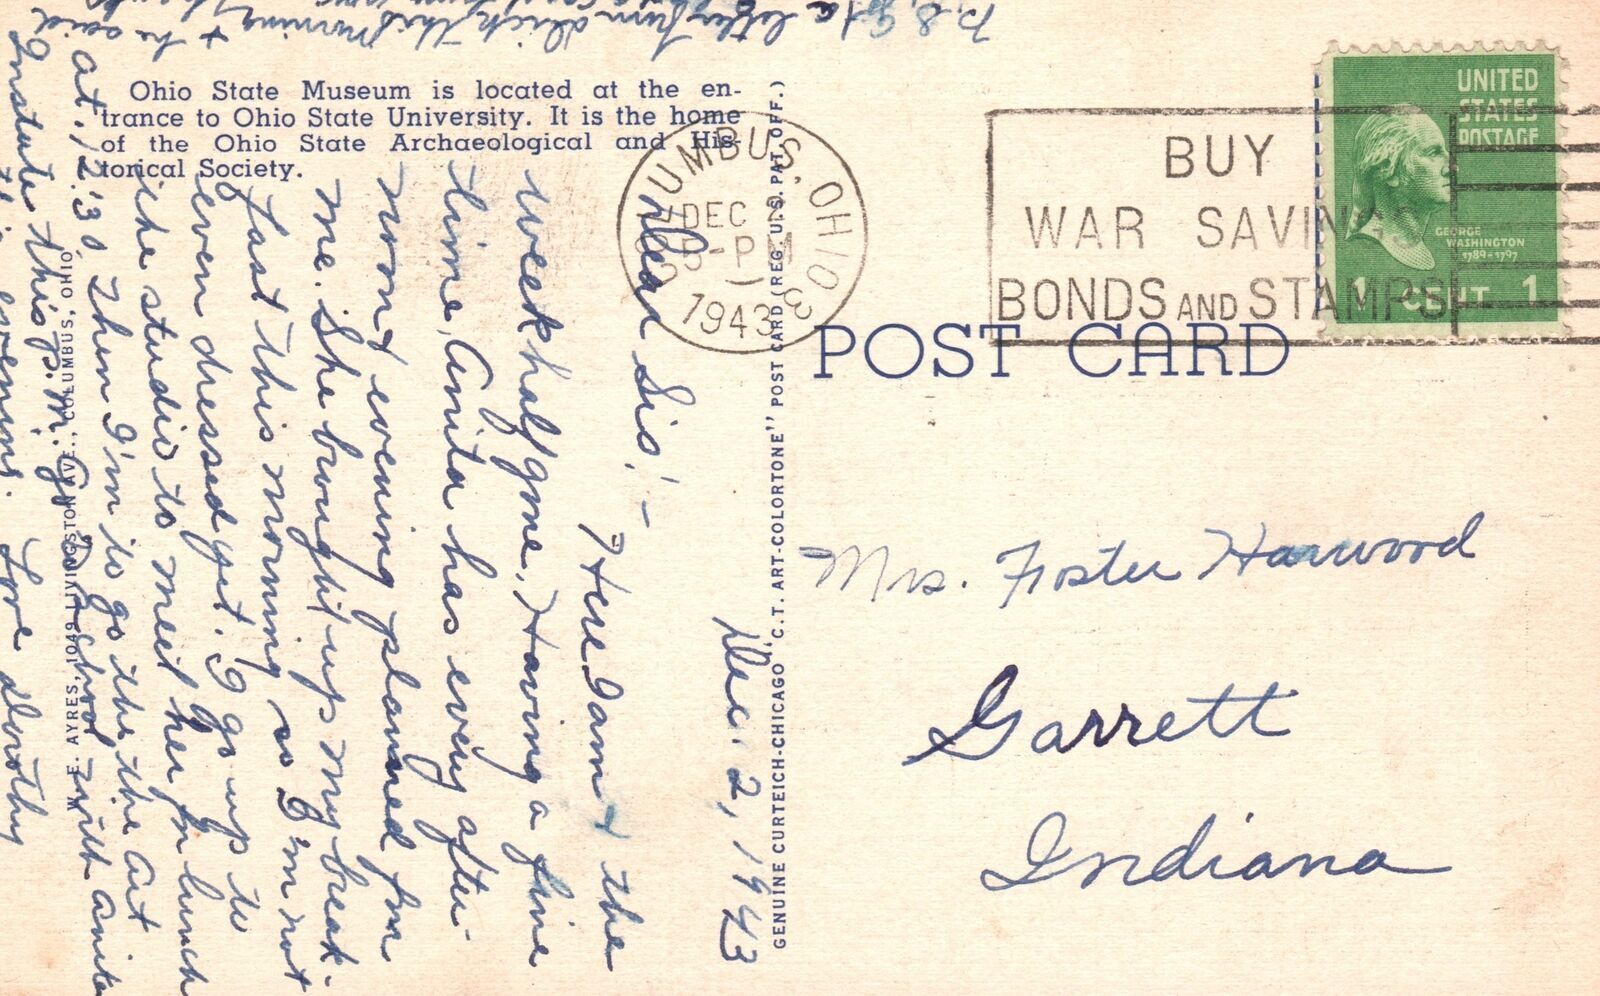 Ohio State Museum is located at the en-
trance to Ohio State University. It is the home
of the Ohio State Archaeological and His-
torical Society.
W. E. AYRES, 1049 LIVINGSTON AVE., COLUMBUS, OHIO
GENUINE CURTEICH-CHICAGO "C.T. ART-COLORTONE" POST CARD (REG. U.S. PAT. OFF.)
POST CARD
COLUMBUS, OHIO 3
DEC 2
5-PM
1943
BUY
WAR SAVINGS
BONDS AND STAMPS
UNITED
STATES
POSTAGE
GEORGE
WASHINGTON
1789-1797
1 CENT 1
Dec. 2, 1943
Dear Sis! -
Here I am & the
week half gone. Having a fine
time, Anita has every after
noon & evening planned for
me. She brought up my break-
fast this morning so I'm not
even dressed yet. I go up to
the studio to meet her for lunch
at 12:30 then I'm to go the the art
Institute this p.m. Go to School with Anita
this evening. Love Dorothy
P.S. Got a letter from Dick this morning & he said
Mrs. Foster Harwood
Garrett
Indiana